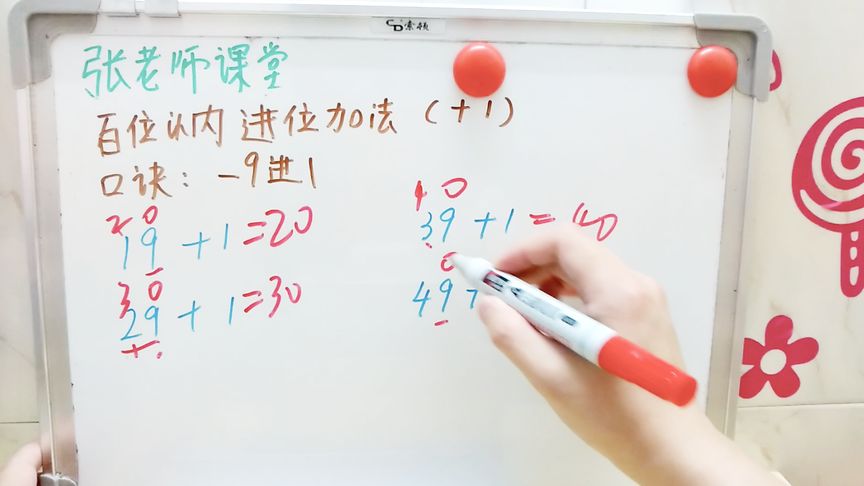 索顿
张老师课堂
百位以内进位加法（+1）
口诀：-9进1
20
19+1=20
30
29+1=30
40
39+1=40
0
49+